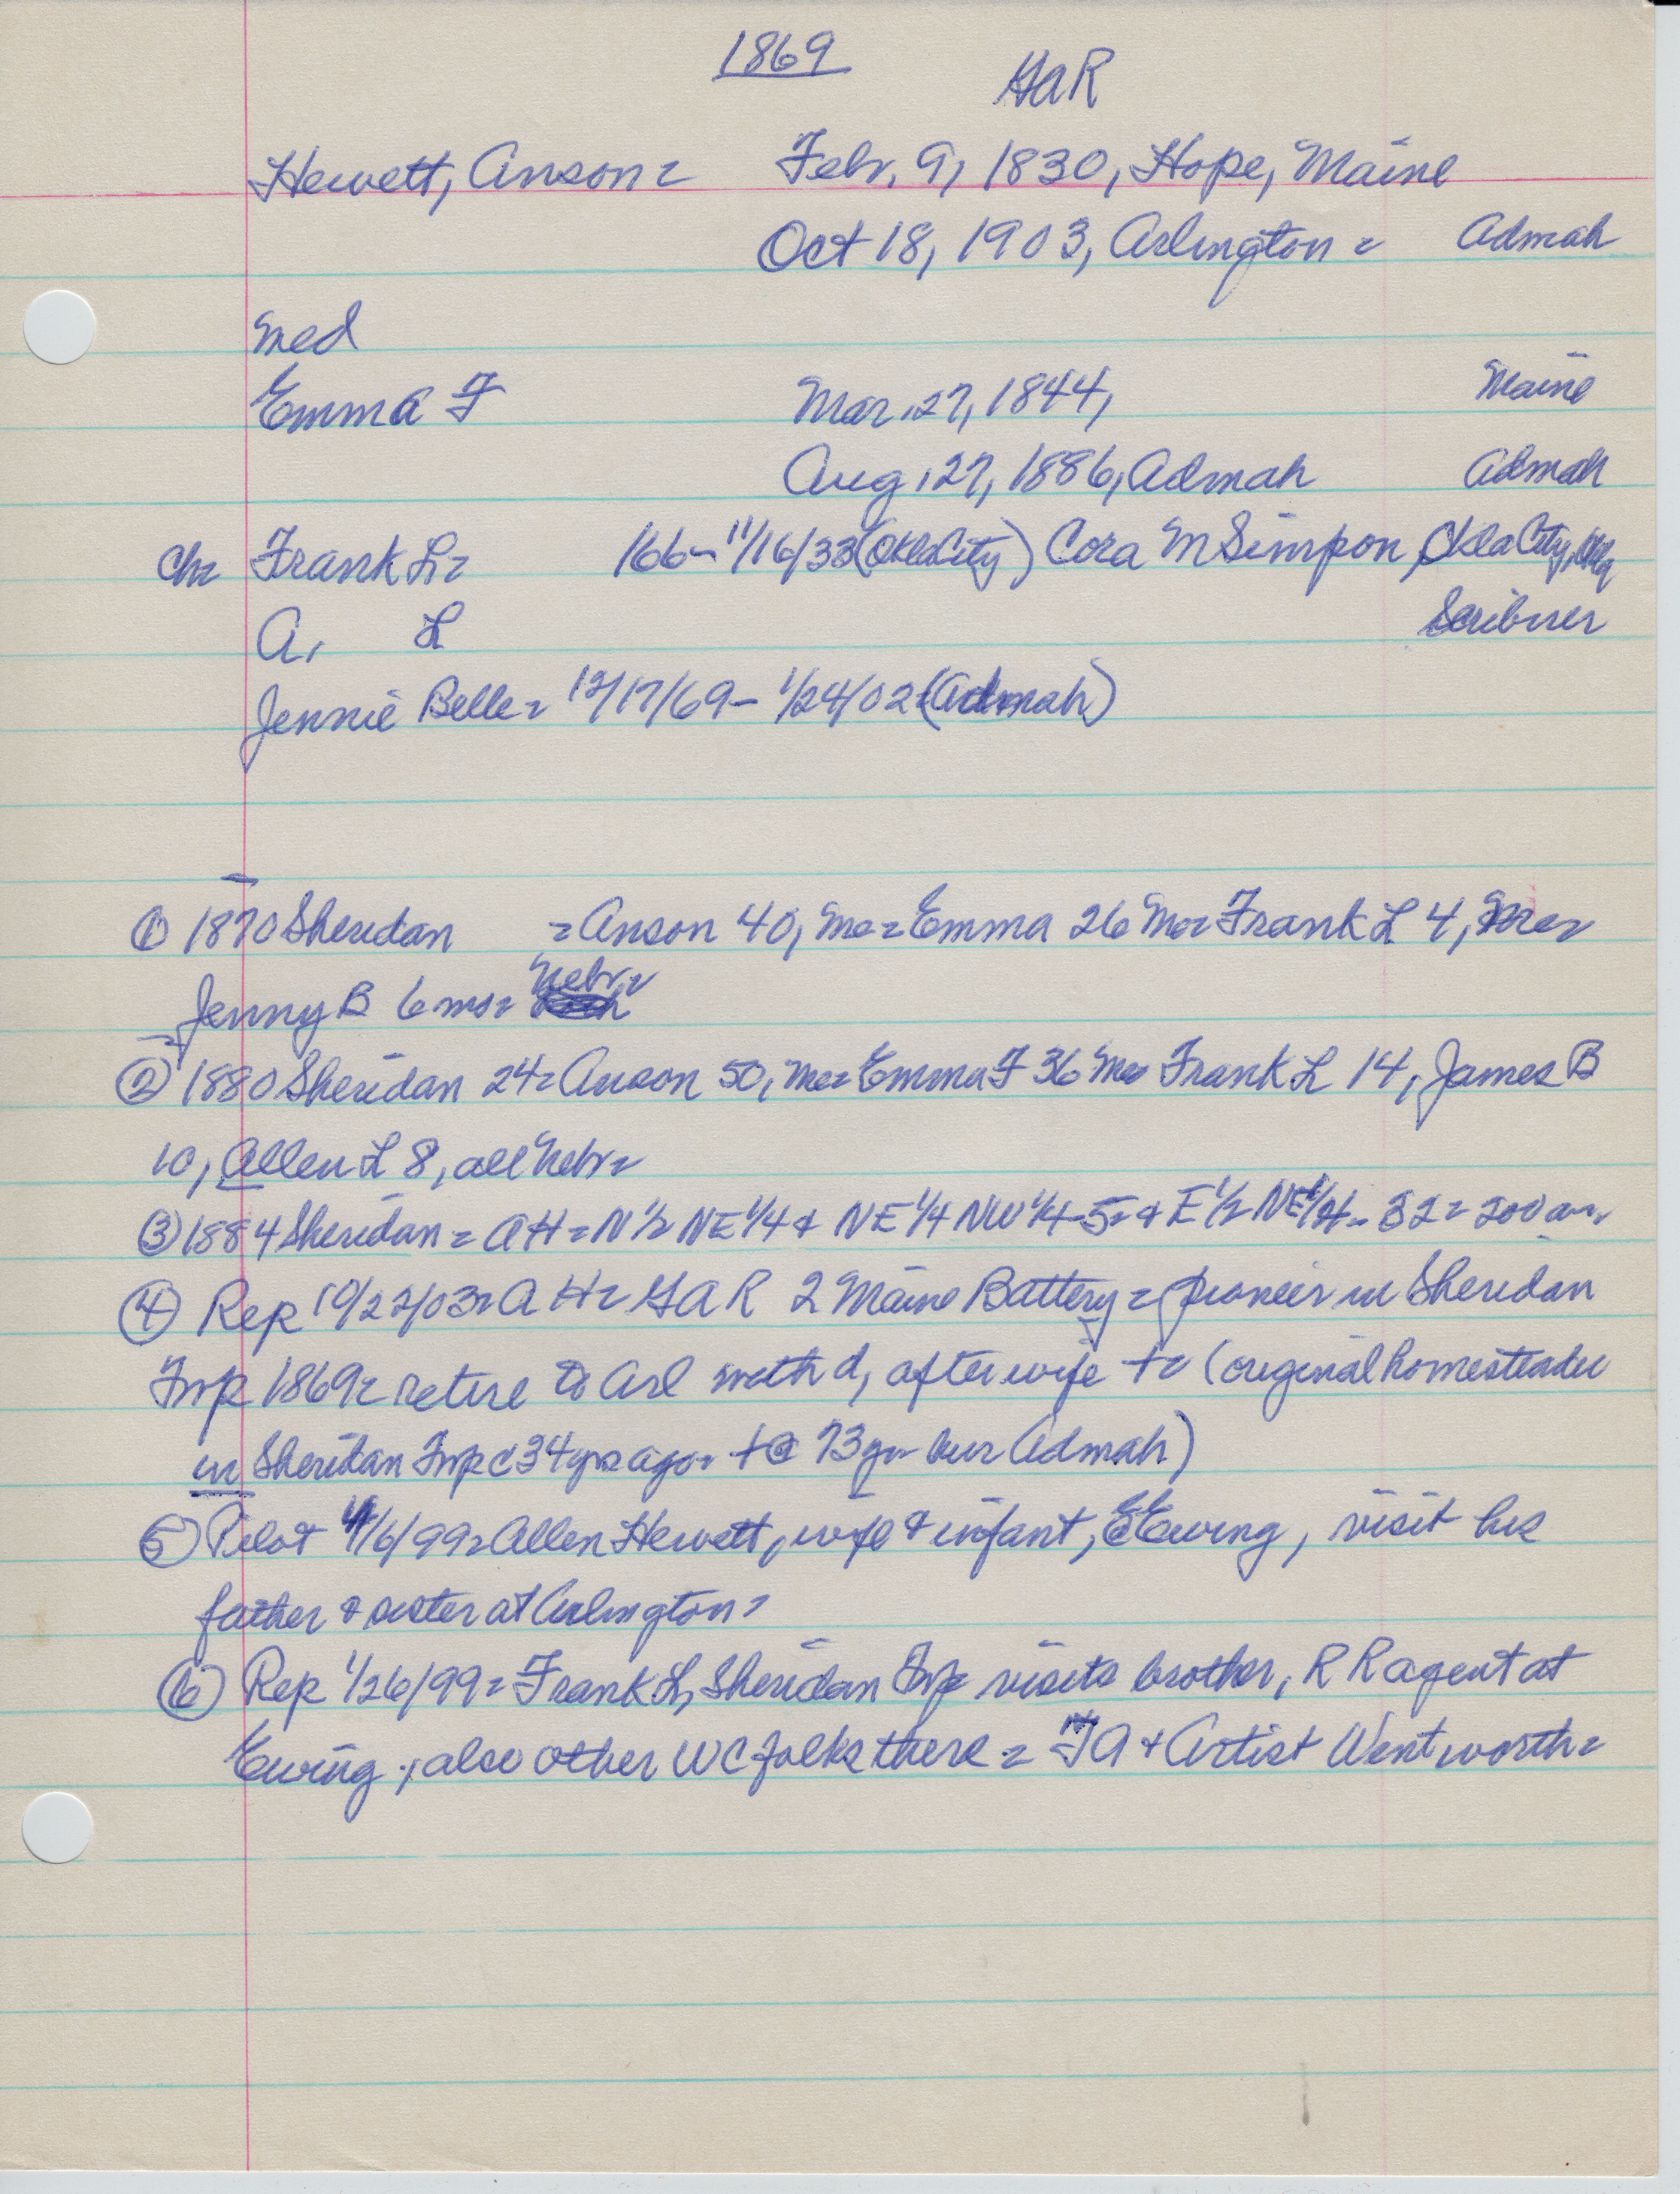 1869
GAR
Hewett, Anson = Febr. 9, 1830, Hope, Maine
Oct 18, 1903, Arlington = Admah
med
Emma F Mar. 27, 1844, Maine
Aug. 27, 1886, Admah Admah
Ch= Frank L= '66- 11/16/33 (OklaCity) Cora M Simpson, Okla City, Okla
A. L Scribner
Jennie Belle = 12/17/69 - 1/24/02 (Admah)
① 1870 Sheridan = Anson 40, Me = Emma 26 Me= Frank L 4, Me=
Jenny B 6 mo= Nebr=
② 1880 Sheridan 24= Anson 50, Me= Emma F 36 Me= Frank L 14, James B
10, Allen L 8, all Nebr=
③ 1884 Sheridan = AH = N 1/2 NE 1/4 & NE 1/4 NW 1/4-5= & E 1/2 NE 1/4- 32 = 200 a=
④ Rep 10/22/03= A H= GAR 2 Maine Battery = pioneer in Sheridan
Twp 1869= retire to Arl with d, after wife += (original homesteader
in Sheridan Twp c 34 yrs ago= +@ 73 y= bur Admah)
⑤ Pilot 4/6/99= Allen Hewett, wife & infant, Ewing, visit his
father & sister at Arlington=
⑥ Rep 1/26/99= Frank L, Sheridan Twp visits brother, R R agent at
Ewing; also other WC folks there = FA & Artist Wentworth=